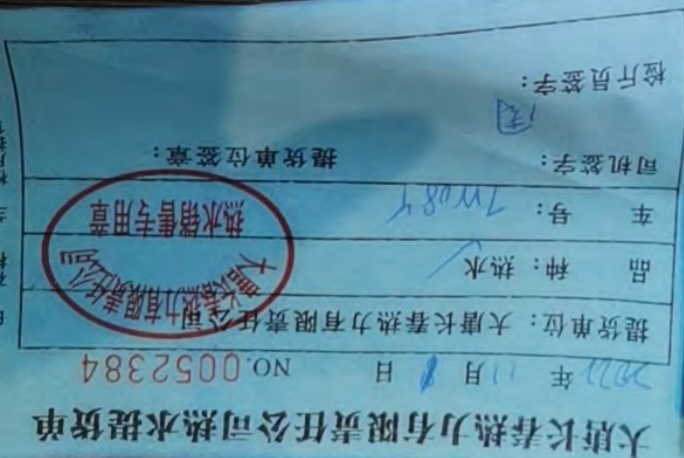 大唐长春热力有限责任公司热水提货单
2022年 11月 8日 NO.0052384
提货单位：大唐长春热力有限责任公司
品 种：热水
车 号：
司机签字： 提货单位签章：
检斤员签字：
大唐长春热力有限责任公司
热水销售专用章